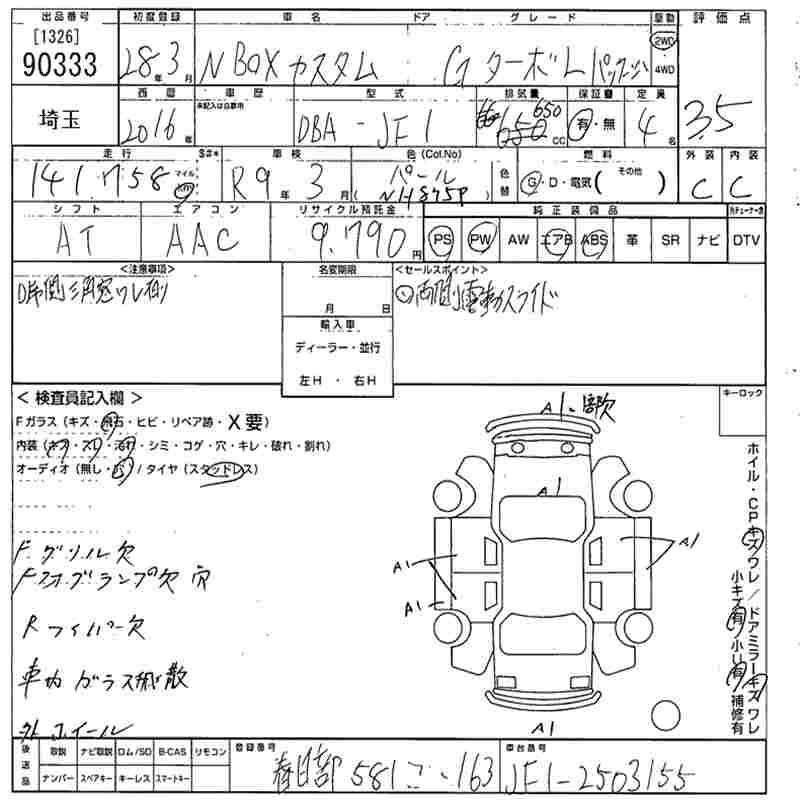 出品番号 初度登録 車名 ドア グレード 駆動 評価点
[1326]
90333 28年3月 N BOX カスタム G ターボLパッケージ 2WD 4WD
西暦 車歴 型式 排気量 保証書 定員
未記入は自家用
埼玉 2016年 DBA-JF1 650 cc 有・無 4名 3.5
走行 S#* 車検 色(Col.No) 燃料 外装 内装
141.758 マイル km R9年3月 パール (NH875P) 色替 G・D・電気( その他 ) C C
シフト エアコン リサイクル預託金 純正装備品
AT AAC 9.790円 PS PW AW エアB ABS 革 SR ナビ DTV
<注意事項> 名変期限 <セールスポイント>
月 日 両側電動スライド
D席側三角窓ワレ有り
輸入車
ディーラー・並行
左H・右H
<検査員記入欄> キーロック
Fガラス(キズ・飛石・ヒビ・リペア跡・X要)
内装(キズ・スリ・汚れ・シミ・コゲ・穴・キレ・破れ・割れ)
オーディオ(無し・ )/タイヤ(スタッドレス)
A1
A1
A1
A1
A1
A1
F.グリル欠
Fフォグランプ欠 穴
Rワイパー欠
車内 ガラス飛散
ホイル・CPキズワレ/ドアミラーキズワレ
小キズ有 小U有 補修有
後送品 取説 ナビ取説 ロム/SD B-CAS リモコン 登録番号 車台番号
ナンバー スペアキー キーレス スマートキー 春日部 581 こ 163 JF1-2503155